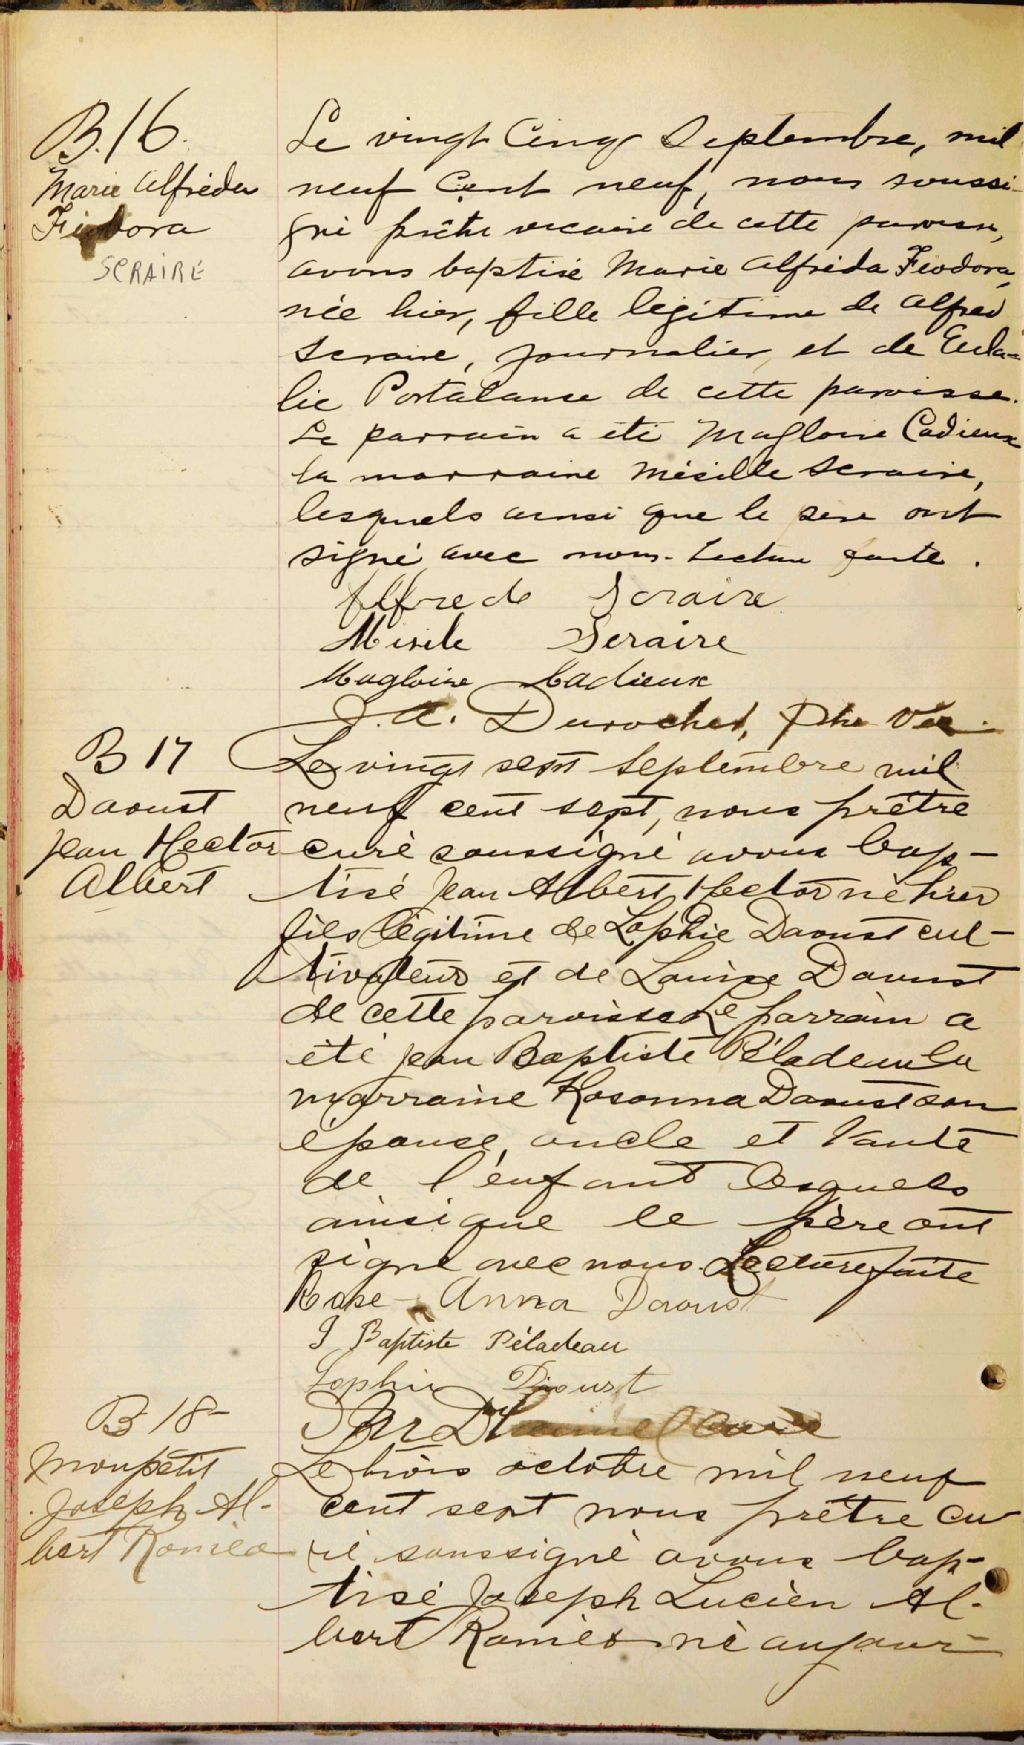 B.16.
Marie Alfréda
Féodora
SERAIRE
Le vingt Cinq Septembre, mil
neuf Cent neuf, nous soussi-
gné prêtre vicaire de cette paroisse,
avons baptisé Marie Alfréda Féodora,
née hier, fille légitime de Alfred
Seraire, journalier, et de Eula-
lie Portalance de cette paroisse.
Le parrain a été Magloire Cadieux
la marraine Mésille Seraire,
lesquels ainsi que le père ont
signé avec nous. Lecture faite.
Alfrede Seraire
Mesile Seraire
Magloire Cadieux
J. A. Durocher, Ptre Vic.
B 17
Daoust
Jean Hector
Albert
Le vingt sept Septembre mil
neuf cent sept, nous prêtre
curé soussigné avons bap-
tisé Jean Albert Hector né hier
fils légitime de Lophie Daoust cul-
tivateur et de Louise Daoust
de cette paroisse Le parrain a
été Jean Baptiste Péladeau la
marraine Rosanna Daoust son
épouse, oncle et tante
de l'enfant lesquels
ainsi que le père ont
signé avec nous. Lecture faite
Rose-Anna Daoust
J Baptiste Péladeau
Lophie Daoust
curé
B 18-
Monpetit
Joseph Al-
bert Roméo
Le trois octobre mil neuf
cent sept nous prêtre cu
ré soussigné avons bap-
tisé Joseph Lucien Al-
bert Roméo né aujour-